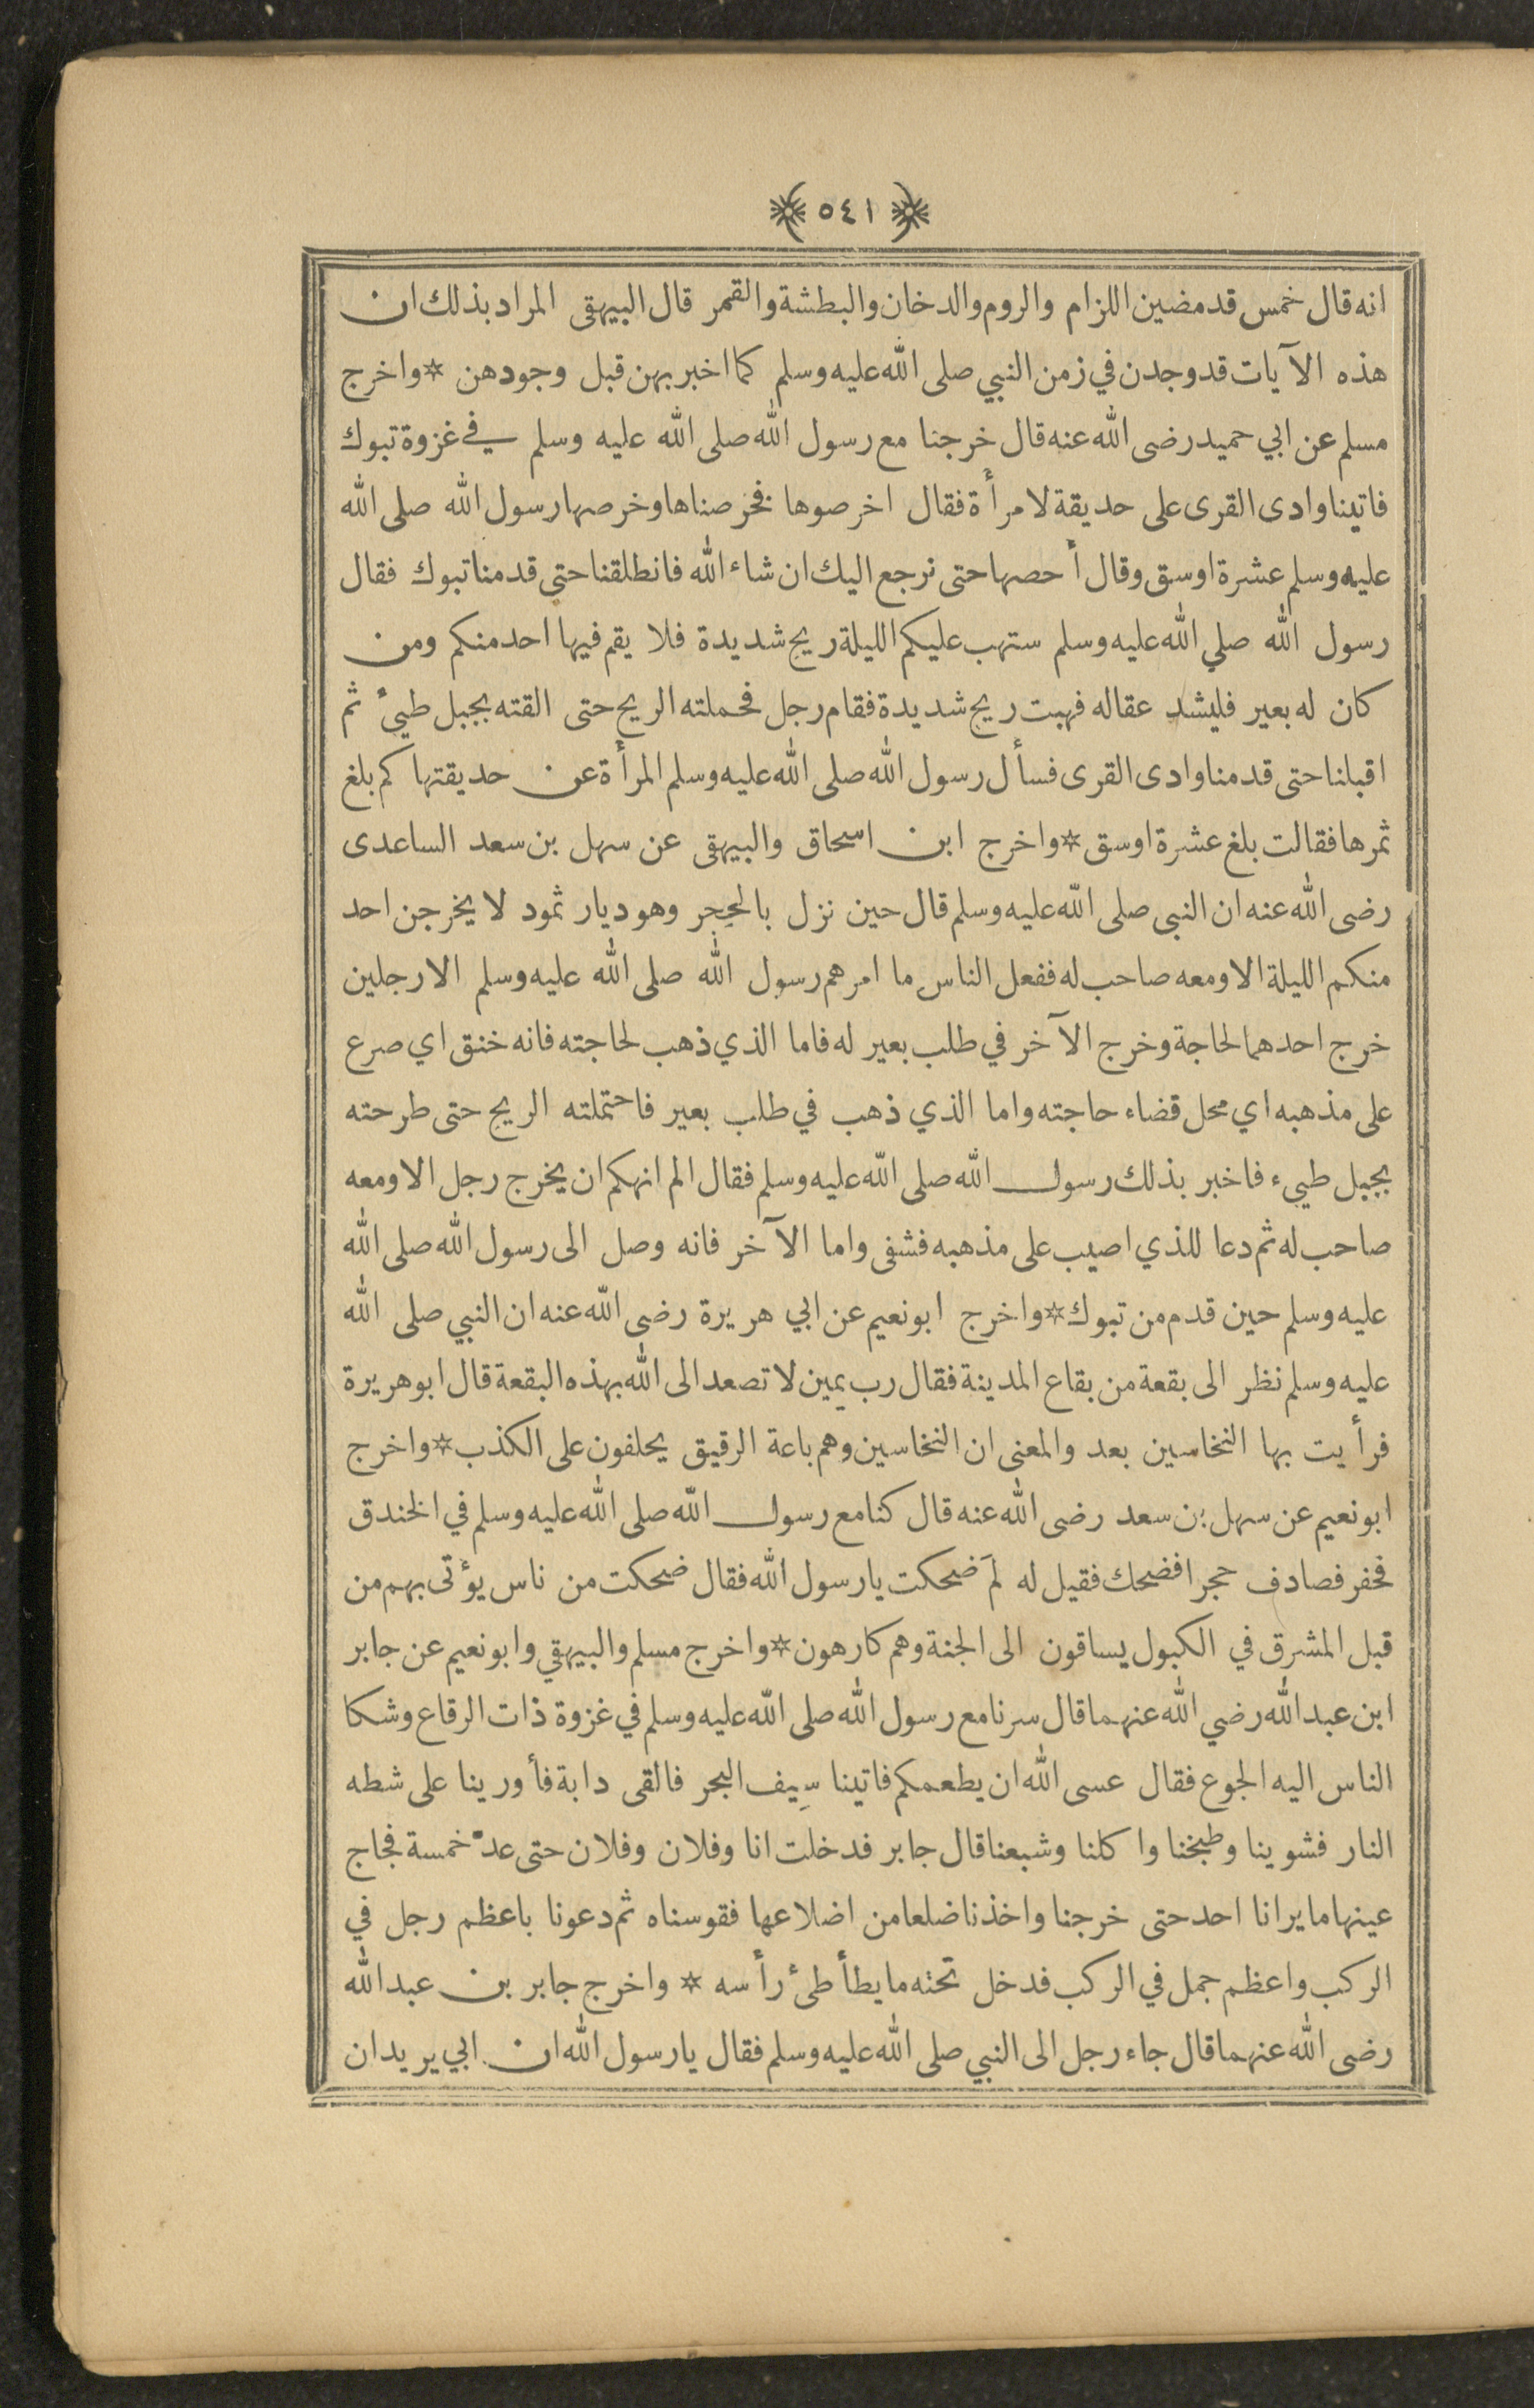 ﴿ ٥٤١ ﴾
انه قال خمس قد مضين اللزام والروم والدخان والبطشة والقمر قال البيهقى المراد بذلك ان
هذه الآيات قد وجدن في زمن النبي صلى الله عليه وسلم كما اخبر بهن قبل وجودهن * واخرج
مسلم عن ابي حميد رضى الله عنه قال خرجنا مع رسول الله صلى الله عليه وسلم في غزوة تبوك
فاتينا وادى القرى على حديقة لامرأة فقال اخرصوها فخرصناها وخرصها رسول الله صلى الله
عليه وسلم عشرة اوسق وقال أحصها حتى نرجع اليك ان شاء الله فانطلقنا حتى قدمنا تبوك فقال
رسول الله صلي الله عليه وسلم ستهب عليكم الليلة ريح شديدة فلا يقم فيها احد منكم ومن
كان له بعير فليشد عقاله فهبت ريح شديدة فقام رجل فحملته الريح حتى القته بجبل طيئ ثم
اقبلنا حتى قدمنا وادى القرى فسأل رسول الله صلى الله عليه وسلم المرأة عن حديقتها كم بلغ
ثمرها فقالت بلغ عشرة اوسق * واخرج ابن اسحاق والبيهقى عن سهل بن سعد الساعدى
رضى الله عنه ان النبى صلى الله عليه وسلم قال حين نزل بالحِجر وهو ديار ثمود لا يخرجن احد
منكم الليلة الا ومعه صاحب له ففعل الناس ما امرهم رسول الله صلى الله عليه وسلم الا رجلين
خرج احدهما لحاجة وخرج الآخر في طلب بعير له فاما الذي ذهب لحاجته فانه خنق اي صرع
على مذهبه اي محل قضاء حاجته واما الذي ذهب في طلب بعير فاحتملته الريح حتى طرحته
بجبل طيىء فاخبر بذلك رسول الله صلى الله عليه وسلم فقال الم انهكم ان يخرج رجل الا ومعه
صاحب له ثم دعا للذي اصيب على مذهبه فشفى واما الآخر فانه وصل الى رسول الله صلى الله
عليه وسلم حين قدم من تبوك * واخرج ابو نعيم عن ابي هريرة رضى الله عنه ان النبي صلى الله
عليه وسلم نظر الى بقعة من بقاع المدينة فقال رب يمين لا تصعد الى الله بهذه البقعة قال ابو هريرة
فرأيت بها النخاسين بعد والمعنى ان النخاسين وهم باعة الرقيق يحلفون على الكذب * واخرج
ابو نعيم عن سهل بن سعد رضى الله عنه قال كنا مع رسول الله صلى الله عليه وسلم في الخندق
فحفر فصادف حجرا فضحك فقيل له لمَ ضحكت يا رسول الله فقال ضحكت من ناس يؤتى بهم من
قبل المشرق في الكبول يساقون الى الجنة وهم كارهون * واخرج مسلم والبيهقي وابو نعيم عن جابر
ابن عبد الله رضي الله عنهما قال سرنا مع رسول الله صلى الله عليه وسلم في غزوة ذات الرقاع وشكا
الناس اليه الجوع فقال عسى الله ان يطعمكم فاتينا سِيف البحر فالقى دابة فأورينا على شطه
النار فشوينا وطبخنا واكلنا وشبعنا قال جابر فدخلت انا وفلان وفلان حتى عدّ خمسة فجاج
عينها ما يرانا احد حتى خرجنا واخذنا ضلعا من اضلاعها فقوسناه ثم دعونا باعظم رجل في
الركب واعظم جمل في الركب فدخل تحته ما يطأطئ رأسه * واخرج جابر بن عبد الله
رضى الله عنهما قال جاء رجل الى النبي صلى الله عليه وسلم فقال يا رسول الله ان ابي يريد ان